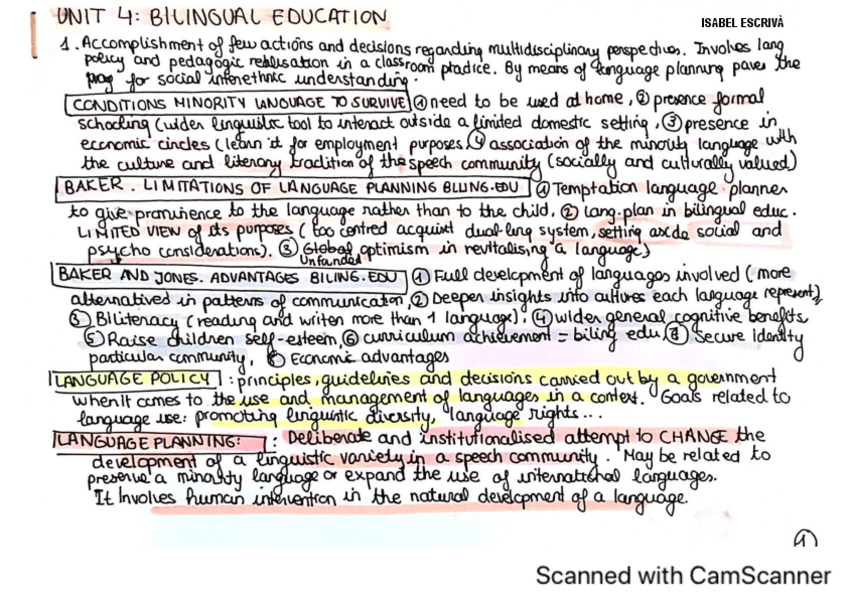 UNIT 4: BILINGUAL EDUCATION
ISABEL ESCRIVÀ
1. Accomplishment of few actions and decisions regarding multidisciplinary perspectives. Involves lang
policy and pedagogic realisation in a classroom practice. By means of language planning paves the
for social interethnic understanding.
CONDITIONS MINORITY LANGUAGE TO SURVIVE ① need to be used at home, ② presence formal
schooling (wider linguistic tool to interact outside a limited domestic setting, ③ presence in
economic circles (learn it for employment purposes. ④ association of the minority language with
the culture and literary tradition of the speech community (socially and culturally valued)
BAKER. LIMITATIONS OF LANGUAGE PLANNING BLLING.EDU ① Temptation language planner
to give prominence to the language rather than to the child, ② lang.plan in bilingual educ.
LIMITED VIEW of its purposes (too centred acquist dual-ling system, setting aside social and
psycho considerations). ③ Global optimism in revitalising a language)
Unfunded
BAKER AND JONES. ADVANTAGES BILING.EDU ① Full development of languages involved (more
alternatived in patterns of communication, ② Deeper insights into cultures each language represent),
③ Biliteracy (reading and writen more than 1 language), ④ wider general cognitive benefits
⑤ Raise children self-esteem, ⑥ curriculum achievement = biling edu, Secure Identity
particular community, Economic advantages
LANGUAGE POLICY : principles, guidelines and decisions carried out by a government
when it comes to the use and management of languages in a context. Goals related to
language use: promoting linguistic diversity, language rights...
LANGUAGE PLANNING: : Deliberate and institutionalised attempt to CHANGE the
development of a linguistic variety in a speech community. May be related to
preserve a minority language or expand the use of international languages.
It Involves human intervention in the natural development of a language.
①
Scanned with CamScanner